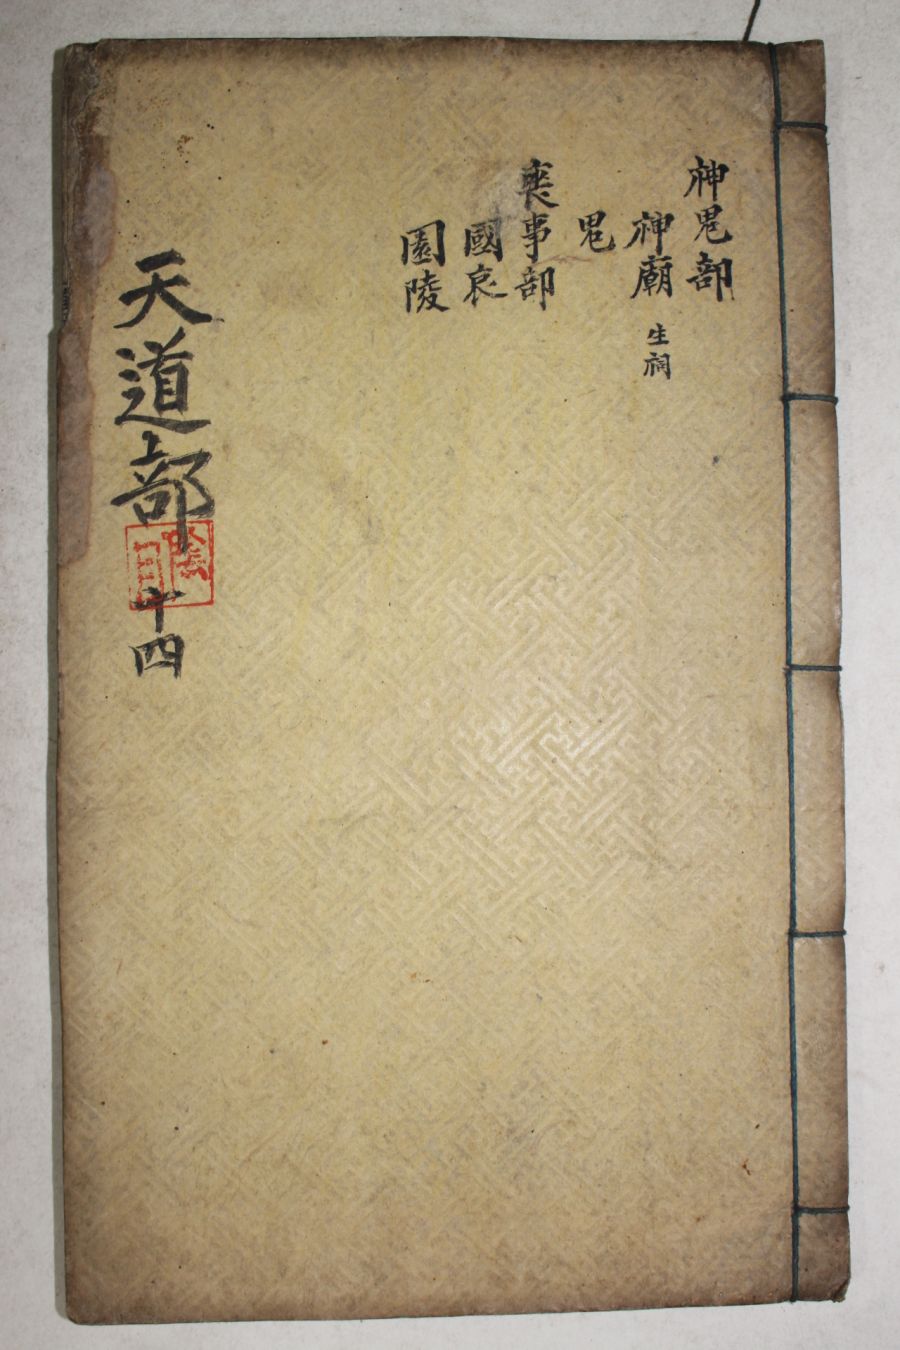 神鬼部
神廟 生祠
鬼
喪事部
國哀
園陵
天道部
十四